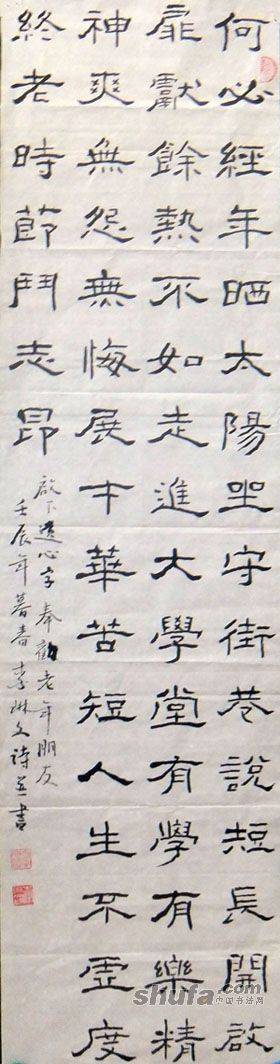 何必經年晒太陽坐守街巷說短長開啟
扉獻餘熱不如走進大學堂有學有樂精
神爽無怨無悔展才華苦短人生不虛度
終老時節鬥志昂
啟下遺心字奉勸老年朋友
壬辰年暮春李琳文詩並書
shufa.com
中国书法网